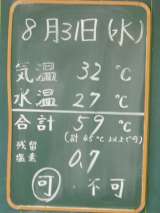 8月31日(水)
気温 32℃
水温 27℃
合計 59℃
(計65℃以上で可)
残留塩素 0.7
可・不可